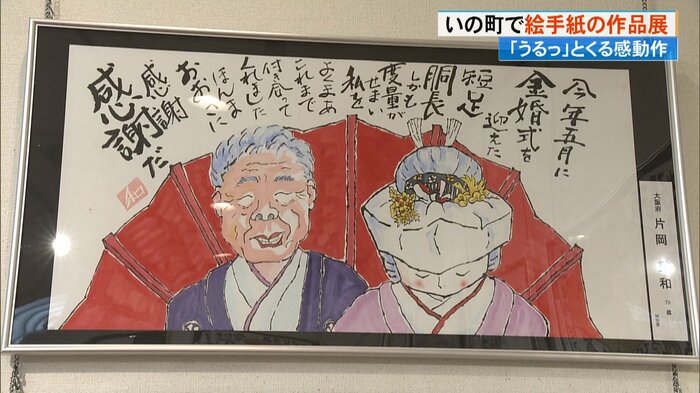 いの町で絵手紙の作品展
「うるっ」とくる感動作
今年五月に
金婚式を
迎えた
短足
胴長
しかも
度量が
せまい
私を
よくまあ
これまで
付き合って
くれました
ほんま
おおきに
感謝
感謝だ
和
大阪府
片岡
和
76歳